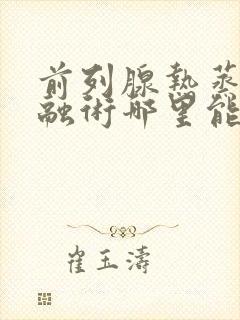 前列腺熱蒸
融術哪里能
崔玉濤